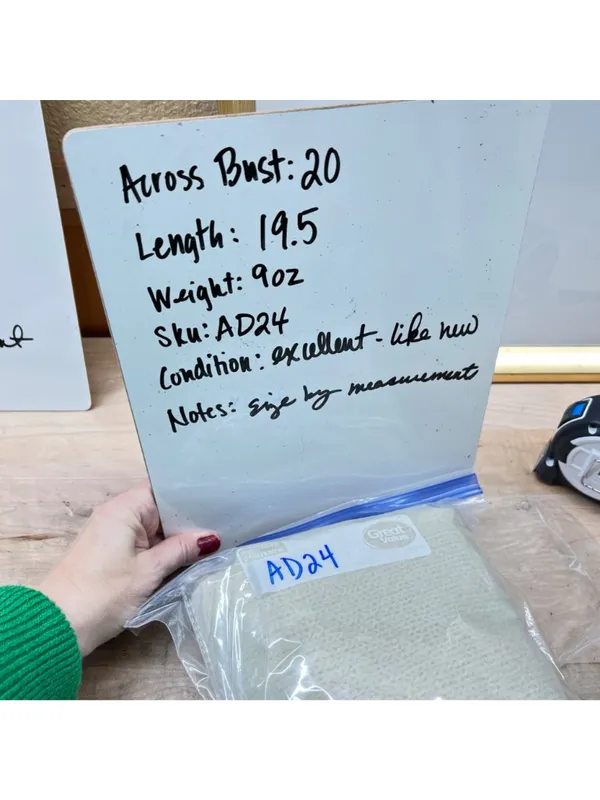 Across Bust: 20
Length: 19.5
Weight: 9oz
Sku: AD24
Condition: excellent - like new
Notes: size by measurements
Great Value
AD24